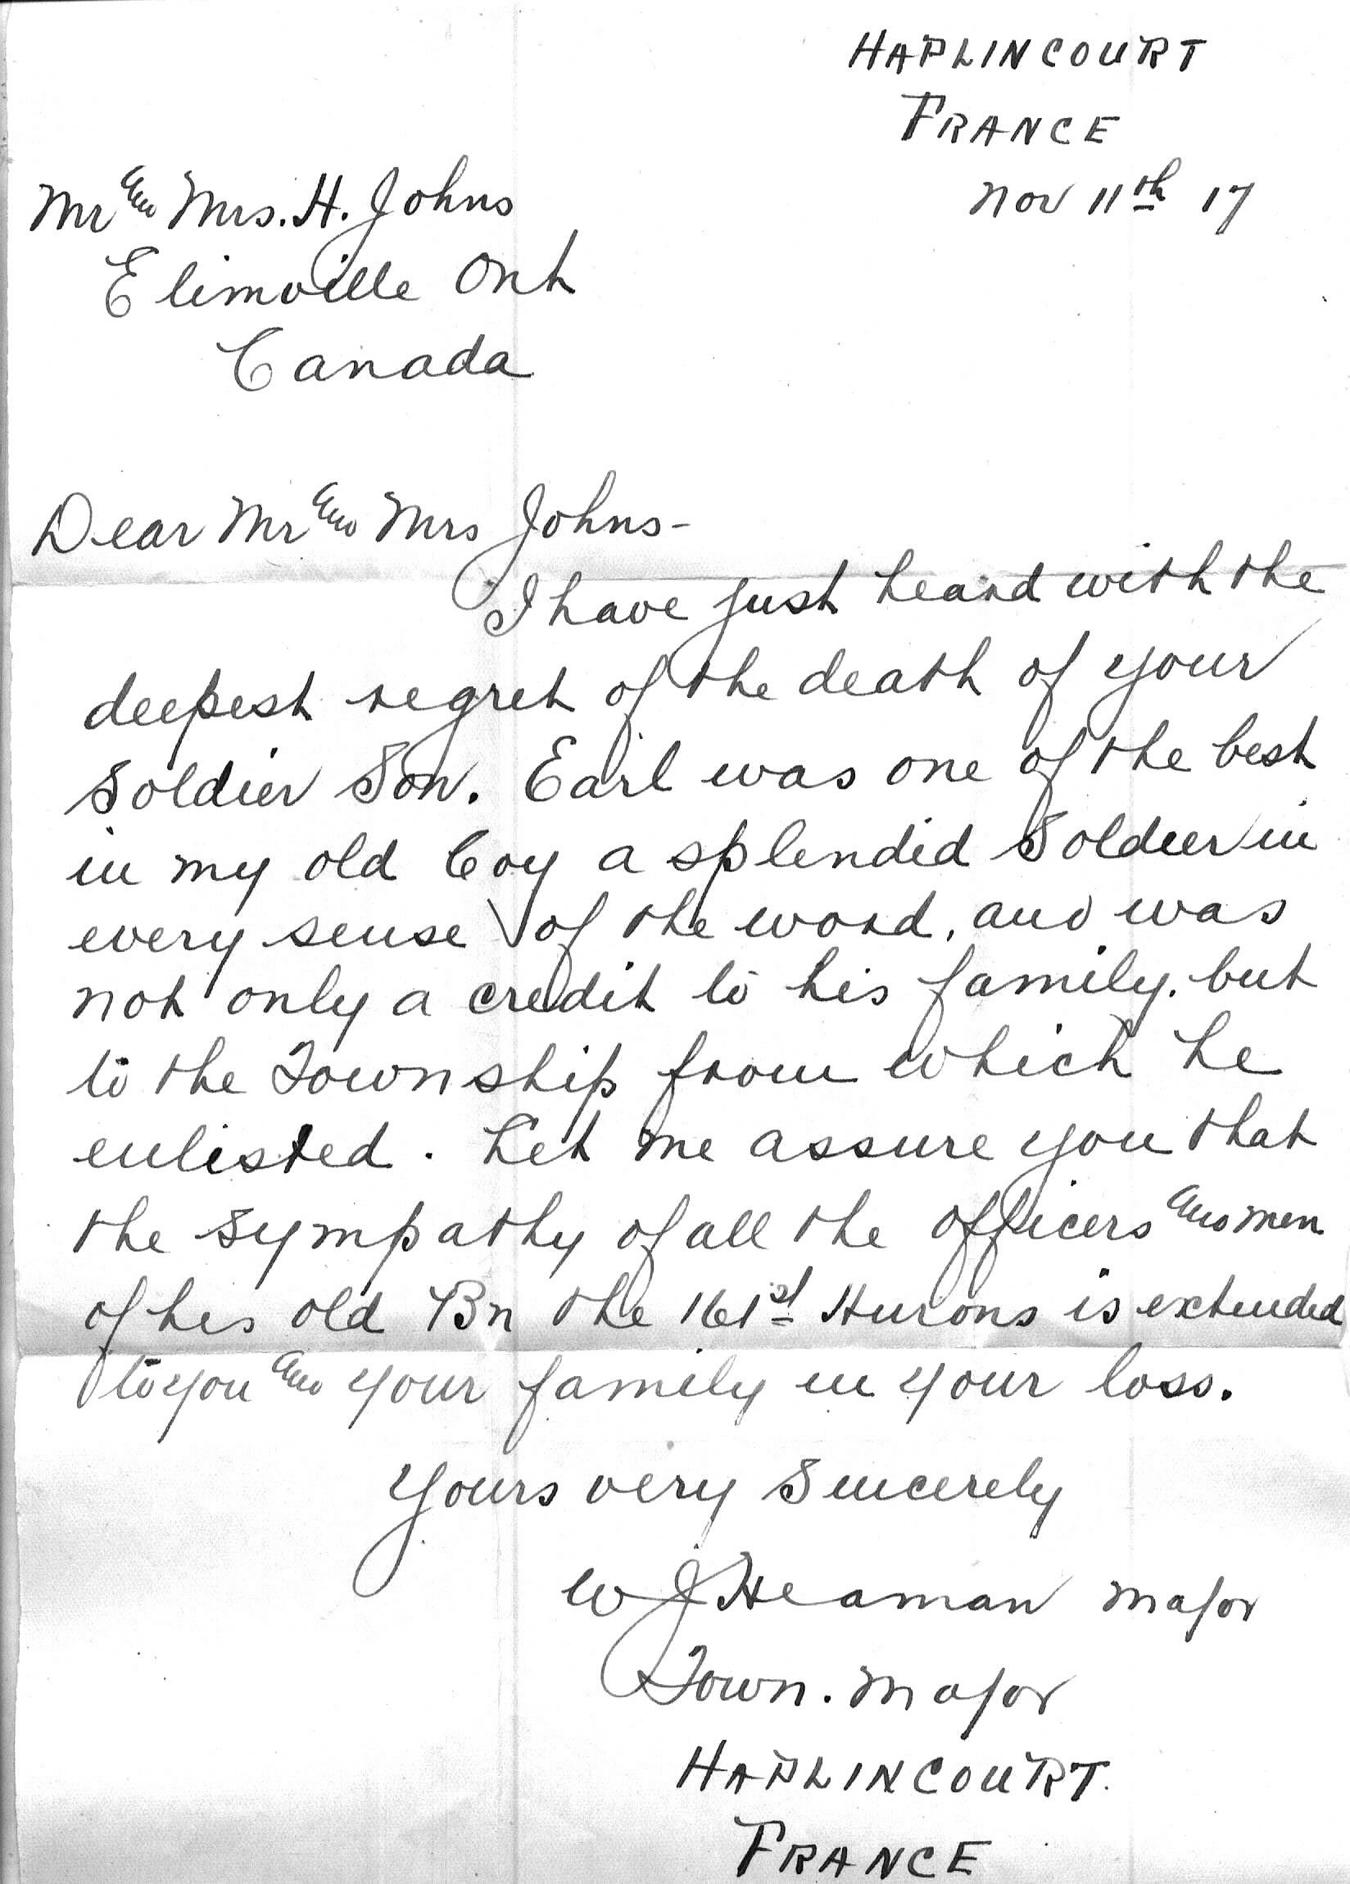 HAPLINCOURT
FRANCE
Nov 11th 17
Mr and Mrs. H. Johns
Elimville Ont
Canada
Dear Mr and Mrs Johns-
I have just heard with the
deepest regret of the death of your
Soldier Son. Earl was one of the best
in my old Coy a splendid Soldier in
every sense of the word, and was
not only a credit to his family, but
to the Township from which he
enlisted. Let me assure you that
the sympathy of all the officers and men
of his old Bn the 161st Hurons is extended
to you and your family in your loss.
Yours very Sincerely
W J Heaman Major
Town. Major
HAPLINCOURT.
FRANCE